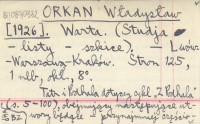 ORKAN Władysław
[1926]. Warta. (Studja
- listy - szkice). Lwów.
-Warszawa-Kraków. Stron 125,
1 nlb., okł., 8°.
Tatr i Podhala dotyczy cykl „Z Podhala"
(s. 5-100), obejmujący następujące ut-
wory będące przynajmniej częścio-